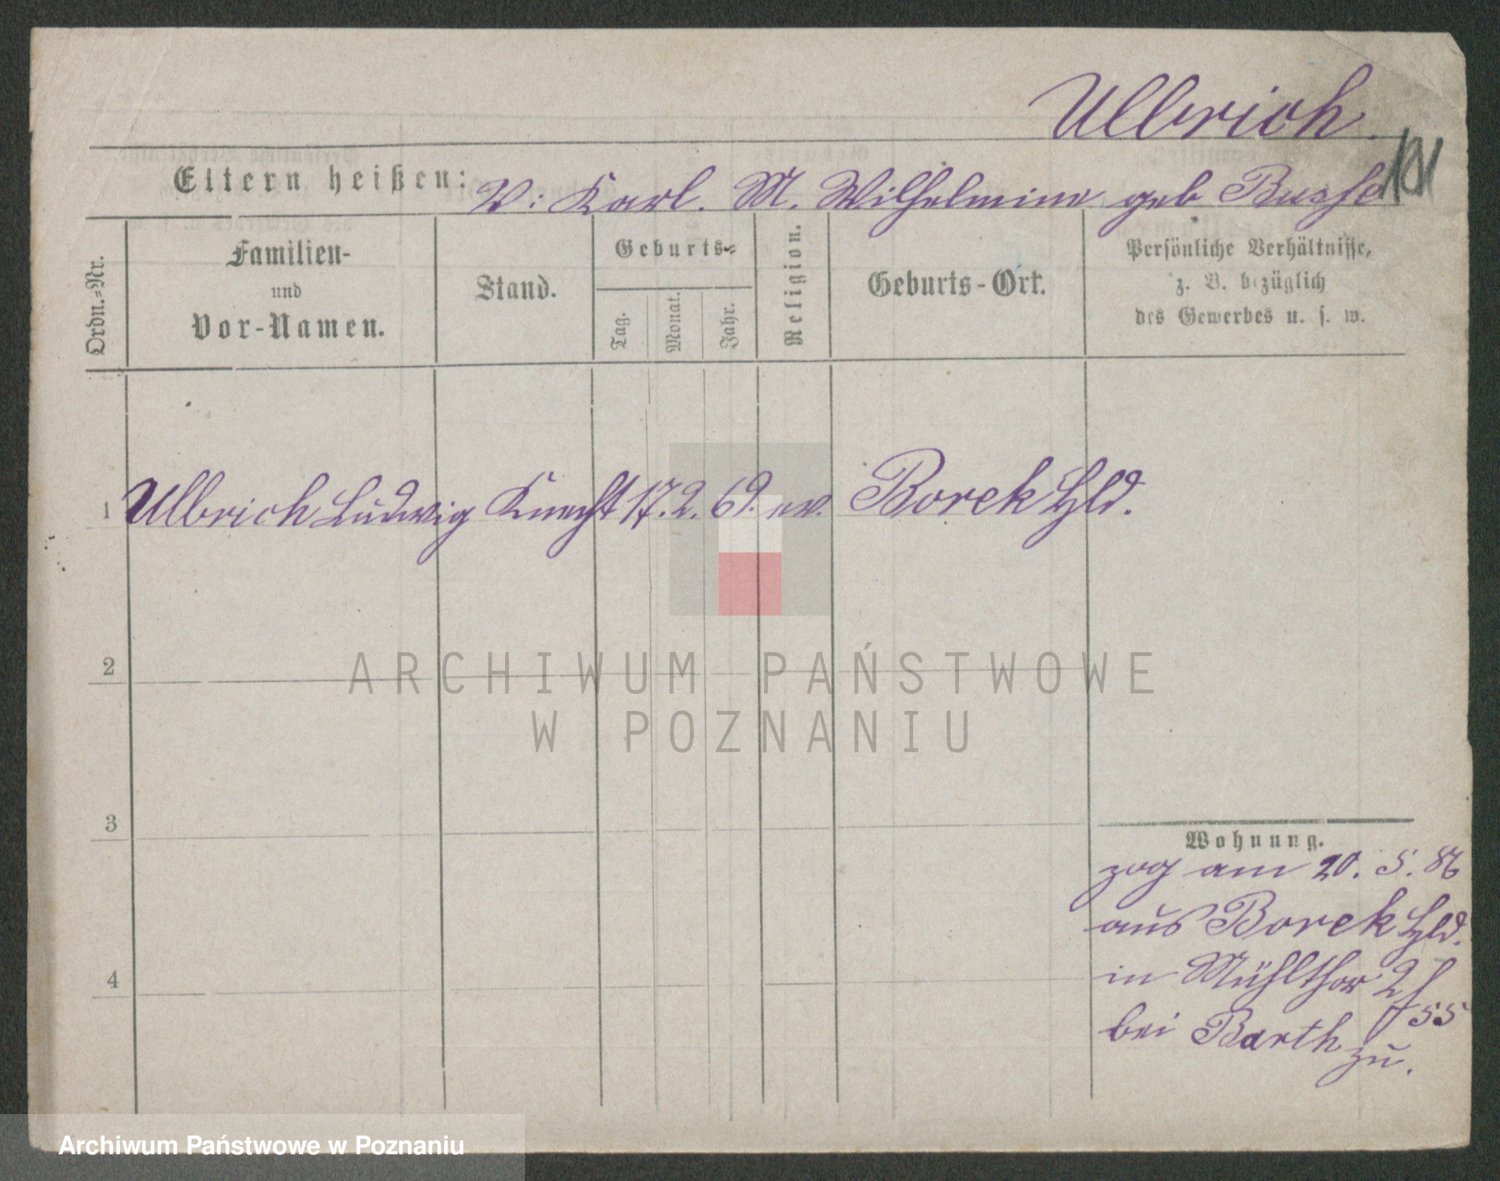 Ullrich.
181
Eltern heißen: V: Karl. M. Wilhelmine geb
Ordn.-Nr.
Familien-
und
Vor-Namen.
Stand.
Geburts-
Tag.
Monat.
Jahr.
Religion.
Geburts-Ort.
Persönliche Verhältnisse,
z. B. bezüglich
des Gewerbes u. s. w.
1 Ullrich Ludwig Knecht 17. 2. 69. ev. Borek Hld.
2
3
4
Wohnung.
zog am 20. 5. 86
aus Borek Hld.
in Mühlthor 2/
755
bei Barth zu.
ARCHIWUM PAŃSTWOWE
W POZNANIU
Archiwum Państwowe w Poznaniu